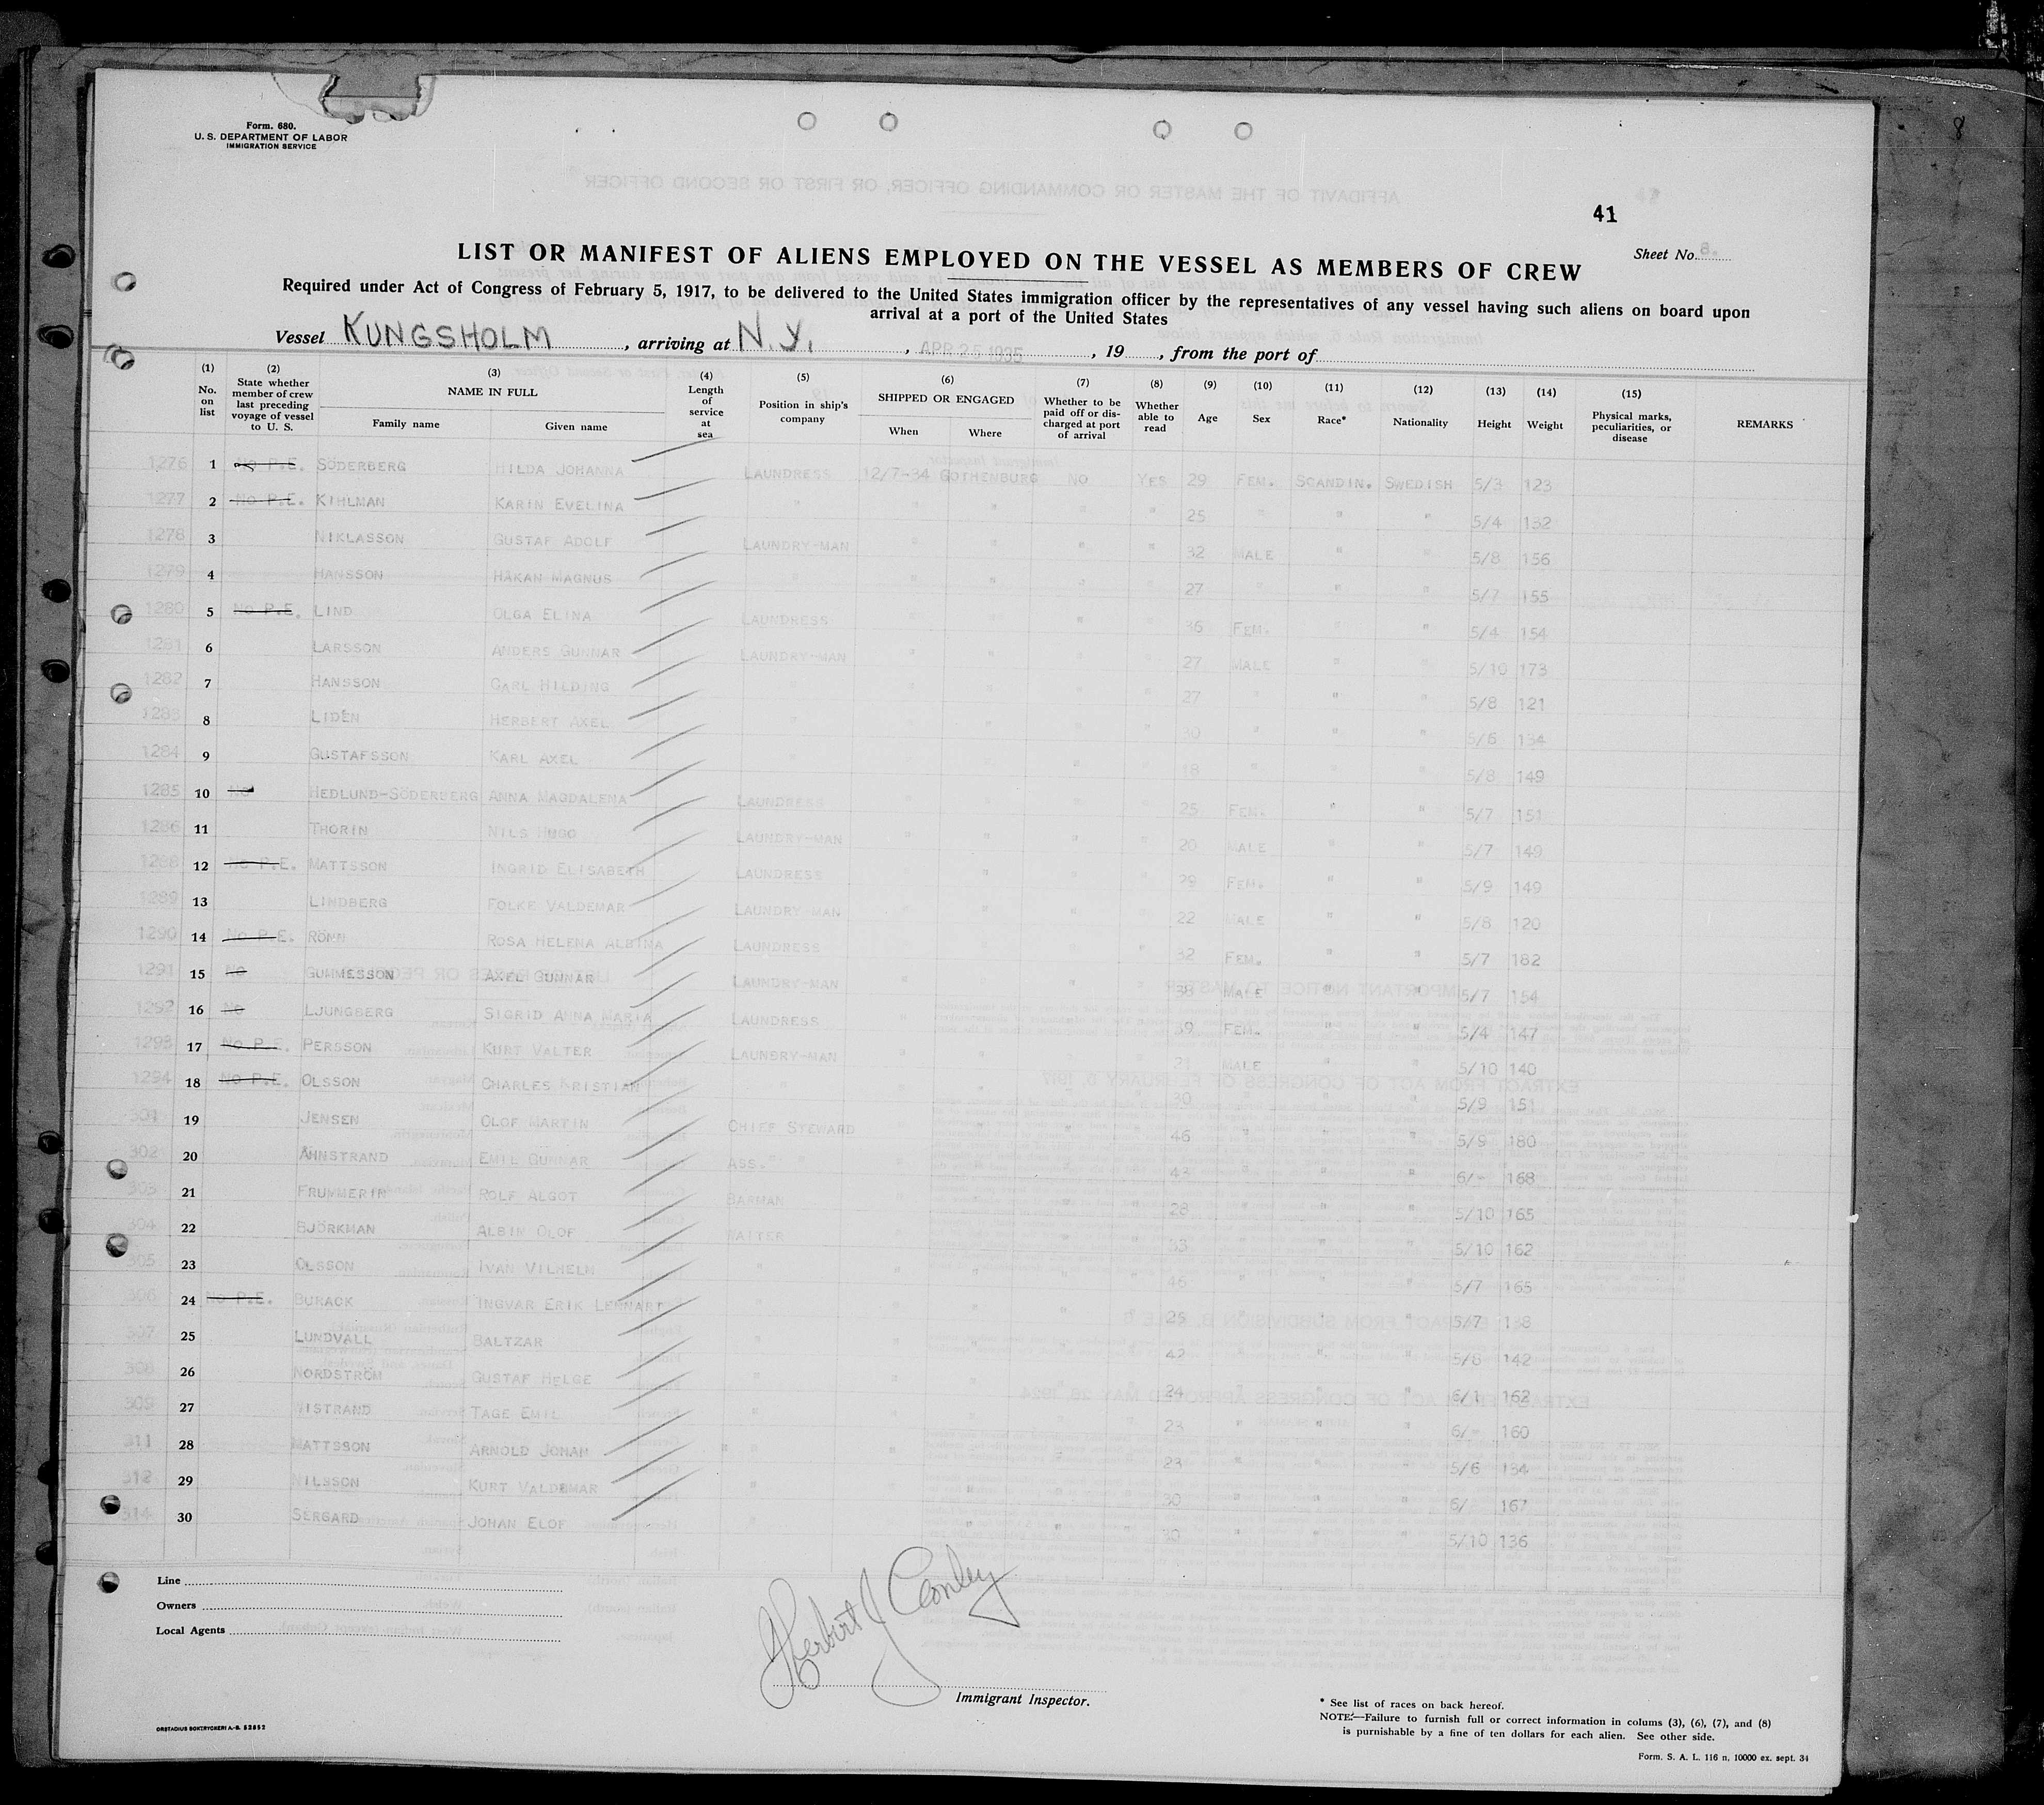 8
Form. 680.
U. S. DEPARTMENT OF LABOR
IMMIGRATION SERVICE
41
Sheet No. 8.
LIST OR MANIFEST OF ALIENS EMPLOYED ON THE VESSEL AS MEMBERS OF CREW
Required under Act of Congress of February 5, 1917, to be delivered to the United States immigration officer by the representatives of any vessel having such aliens on board upon
arrival at a port of the United States
Vessel KUNGSHOLM, arriving at N.Y., APR 25 1935, 19, from the port of
(1) No. on list (2) State whether member of crew last preceding voyage of vessel to U. S. (3) NAME IN FULL Family name Given name (4) Length of service at sea (5) Position in ship's company (6) SHIPPED OR ENGAGED When Where (7) Whether to be paid off or discharged at port of arrival (8) Whether able to read (9) Age (10) Sex (11) Race* (12) Nationality (13) Height (14) Weight (15) Physical marks, peculiarities, or disease REMARKS
1276 1 No P.E. SÖDERBERG HILDA JOHANNA LAUNDRESS 12/7-34 GOTHENBURG NO YES 29 FEM. SCANDIN. SWEDISH 5/3 123
1277 2 No P.E. KIHLMAN KARIN EVELINA " " " " " 25 " " " 5/4 132
1278 3 NIKLASSON GUSTAF ADOLF LAUNDRY-MAN " " " " 32 MALE " " 5/8 156
1279 4 HANSSON HÅKAN MAGNUS " " " " " 27 " " " 5/7 155
1280 5 No P.E. LIND OLGA ELINA LAUNDRESS " " " " 36 FEM. " " 5/4 154
1281 6 LARSSON ANDERS GUNNAR LAUNDRY-MAN " " " " 27 MALE " " 5/10 173
1282 7 HANSSON CARL HILDING " " " " " 27 " " " 5/8 121
1283 8 LIDÉN HERBERT AXEL " " " " " 30 " " " 5/6 134
1284 9 GUSTAFSSON KARL AXEL " " " " " 18 " " " 5/8 149
1285 10 No HEDLUND-SÖDERBERG ANNA MAGDALENA LAUNDRESS " " " " 25 FEM. " " 5/7 151
1286 11 THORIN NILS HUGO LAUNDRY-MAN " " " " 20 MALE " " 5/7 149
1288 12 No P.E. MATTSSON INGRID ELISABETH LAUNDRESS " " " " 29 FEM. " " 5/9 149
1289 13 LINDBERG FOLKE VALDEMAR LAUNDRY-MAN " " " " 22 MALE " " 5/8 120
1290 14 No P.E. RÖNN ROSA HELENA ALBINA LAUNDRESS " " " " 32 FEM. " " 5/7 182
1291 15 No GUMMESSON AXEL GUNNAR LAUNDRY-MAN " " " " MALE " " 5/7 154
1292 16 No LJUNGBERG SIGRID ANNA MARIA LAUNDRESS " " " " 39 FEM. " " 5/4 147
1293 17 No P.E. PERSSON KURT VALTER LAUNDRY-MAN " " " " 21 MALE " " 5/10 140
1294 18 No P.E. OLSSON CHARLES KRISTIAN " " " " " 30 " " " 5/9 151
301 19 JENSEN OLOF MARTIN CHIEF STEWARD " " " " 46 " " " 5/9 180
302 20 ÄNNSTRAND EMIL GUNNAR ASS. " " " " " 42 " " " 6/- 168
303 21 FRUMMERIN ROLF ALGOT BARMAN " " " " 28 " " " 5/10 165
304 22 BJÖRKMAN ALBIN OLOF WAITER " " " " 33 " " " 5/10 162
305 23 OLSSON IVAN VILHELM " " " " " 46 " " " 5/7 165
306 24 No P.E. BURACK INGVAR ERIK LENNART " " " " " 25 " " " 5/7
307 25 LUNDVALL BALTZAR " " " " " 42 " " " 5/8 142
308 26 NORDSTRÖM GUSTAF HELGE " " " " " 24 " " " 6/1 162
309 27 WISTRAND TAGE EMIL " " " " " 23 " " " 6/- 160
311 28 MATTSSON ARNOLD JOHAN " " " " " 23 " " " 5/6 134
312 29 NILSSON KURT VALDEMAR " " " " " 30 " " " 6/ 167
314 30 SERGARD JOHAN ELOF " " " " " 30 " " " 5/10 136
Line
Owners
Local Agents
Herbert J Conley
Immigrant Inspector.
* See list of races on back hereof.
NOTE:—Failure to furnish full or correct information in colums (3), (6), (7), and (8)
is purnishable by a fine of ten dollars for each alien. See other side.
ORSTADIUS BOKTRYCKERI A.-B. 52852
Form. S. A. L. 116 n. 10000 ex. sept. 34